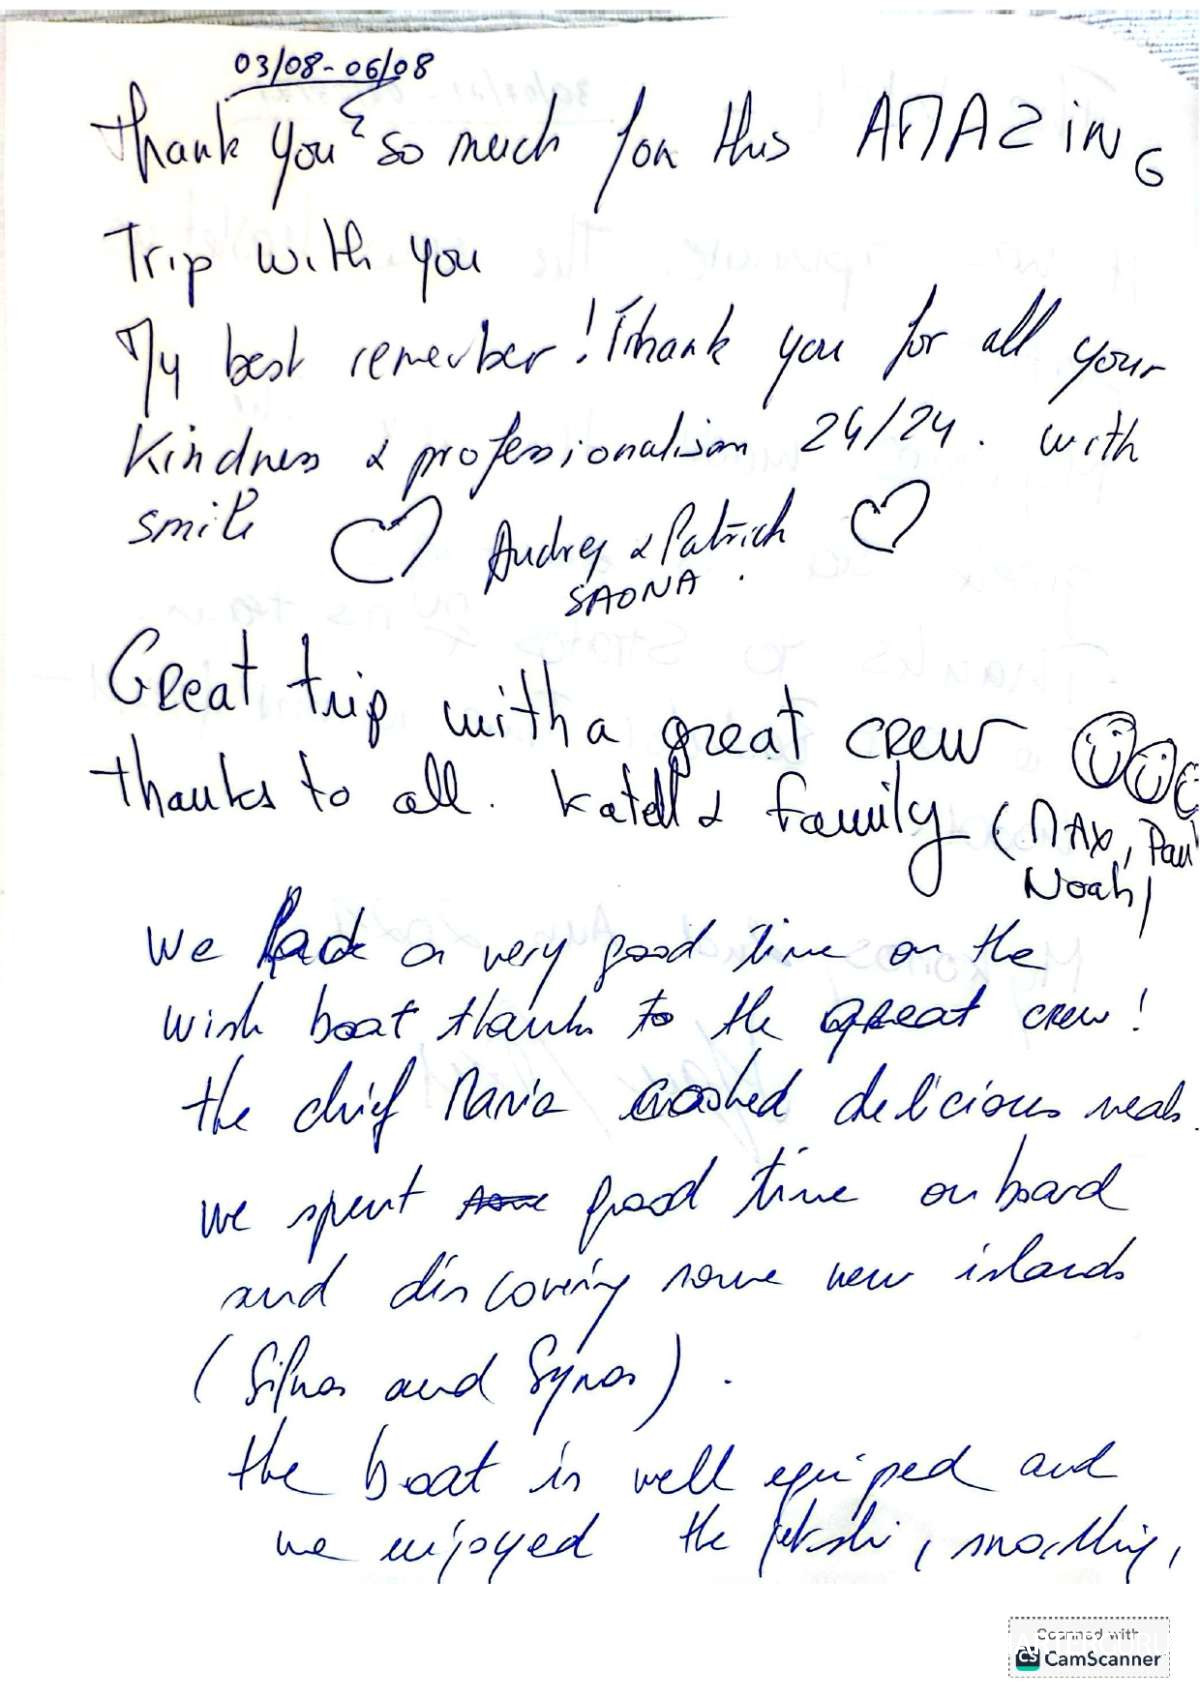 03/08 - 06/08
Thank you so much for this AMAZING
Trip with you
My best remember! Thank you for all your
Kindness & professionalism 24/24. with
smile ♡ Audrey & Patrick ♡
SAONA.
Great trip with a great crew
thanks to all. Katell & family (MAX, Paul
Noah)
We had a very good time on the
wish boat thanks to the great crew!
the chief Maria cooked delicious meals.
we spent good time on board
and discovering some new islands
(Sifnos and Syros).
the boat is well equiped and
we enjoyed the jetski, snorkling,
Scanned with
CS CamScanner